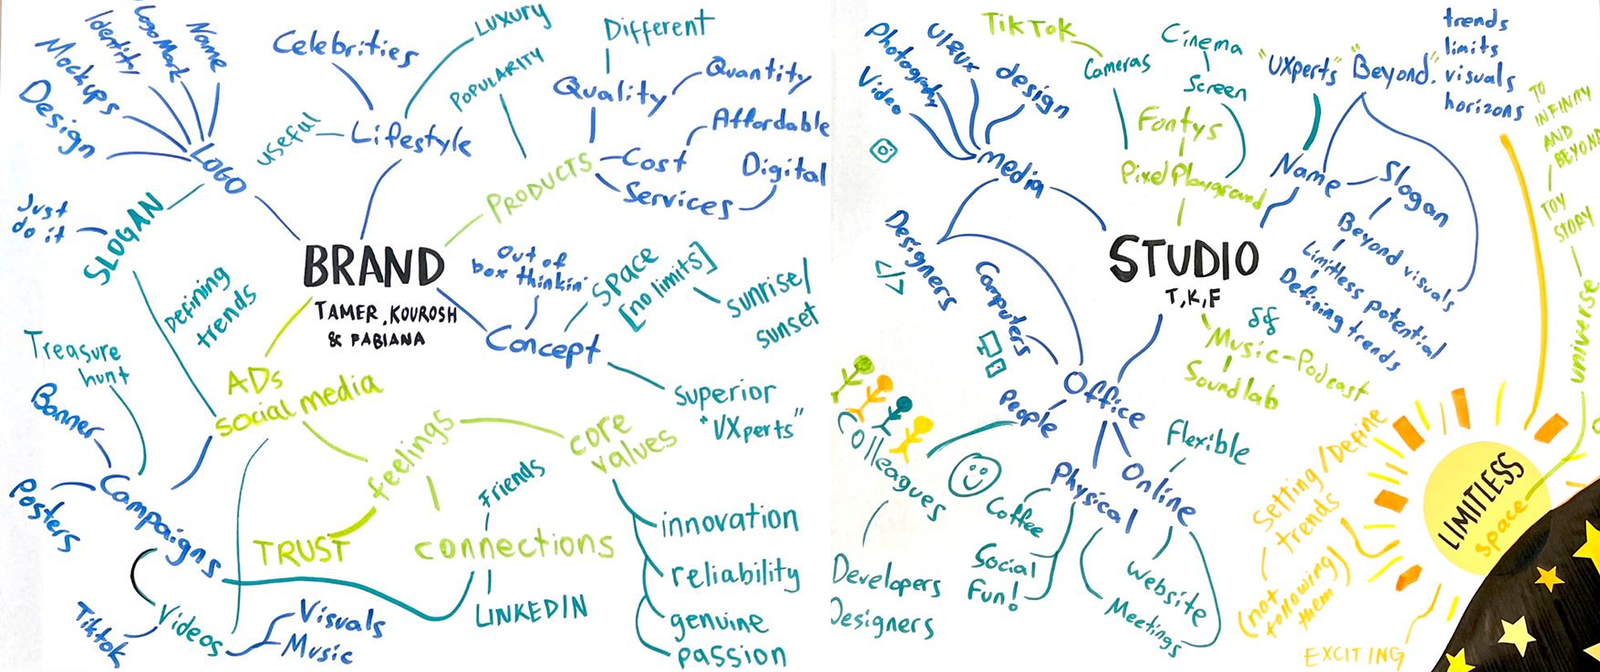 Design
Mockups
Identity
LogoMark
Name
LOGO
Celebrities
Luxury
POPULARITY
useful
Lifestyle
Different
Quality
Quantity
Affordable
Cost
Digital
Services
PRODUCTS
Just
do it
SLOGAN
Defining
trends
BRAND
TAMER, KOUROSH
& FABIANA
Out of
box thinkin'
Concept
Space
[no limits]
sunrise/
sunset
Superior
"UXperts"
Treasure
hunt
Banner
Posters
Campaigns
ADs
social media
feelings
core
values
TRUST
Friends
connections
LINKEDIN
innovation
reliability
genuine
passion
Tiktok
Videos
Visuals
Music
Video
Photography
UI&UX
design
media
TikTok
Cameras
Cinema
Screen
Fontys
Pixel Playground
"UXperts"
"Beyond."
trends
limits
visuals
horizons
TO
INFINITY
AND
BEYOND
TOY
STORY
universe
Name
Slogan
Beyond visuals
Limitless potential
Defining trends
STUDIO
T, K, F
Designers
</>
Computers
Music-Podcast
Soundlab
Office
people
Colleagues
Developers
Designers
Physical
Coffee
Social
Fun!
Online
Flexible
Website
Meetings
Setting/Define
trends
(not
following
them)
EXCITING
LIMITLESS
space